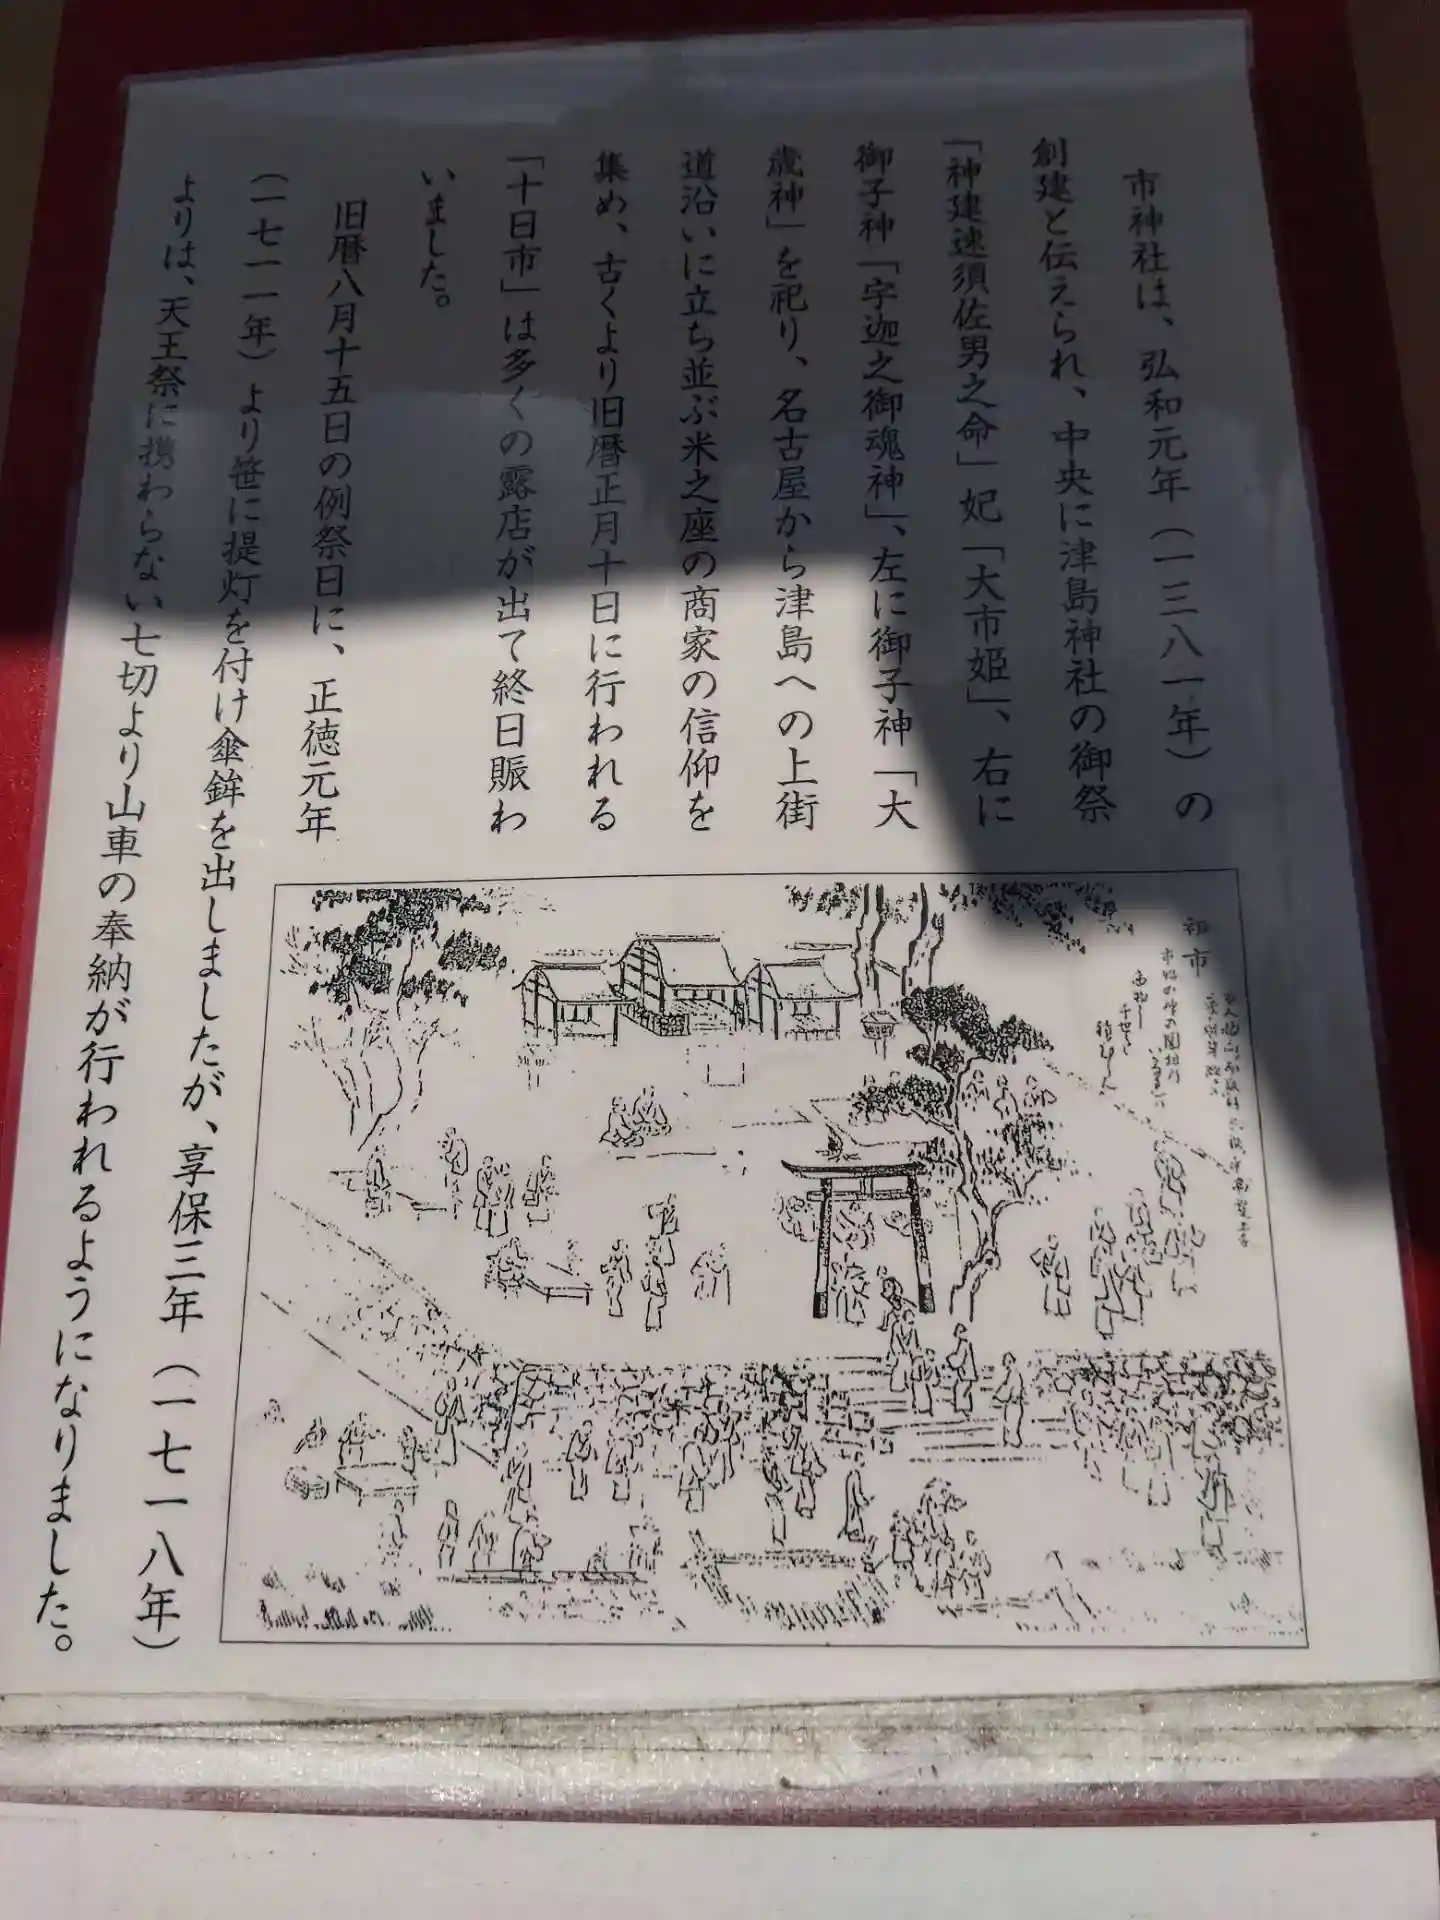 市神社は、弘和元年（一三八一年）の
創建と伝えられ、中央に津島神社の御祭
「神建速須佐男之命」妃「大市姫」、右に
御子神「宇迦之御魂神」、左に御子神「大
歳神」を祀り、名古屋から津島への上街
道沿いに立ち並ぶ米之座の商家の信仰を
集め、古くより旧暦正月十日に行われる
「十日市」は多くの露店が出て終日賑わ
いました。
旧暦八月十五日の例祭日に、正徳元年
（一七一一年）より笹に提灯を付け傘鉾を出しましたが、享保三年（一七一八年）
よりは、天王祭に携わらない七切より山車の奉納が行われるようになりました。